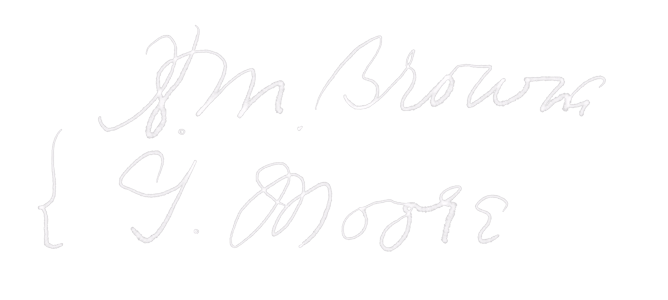 M. Brown
{ G. Moore